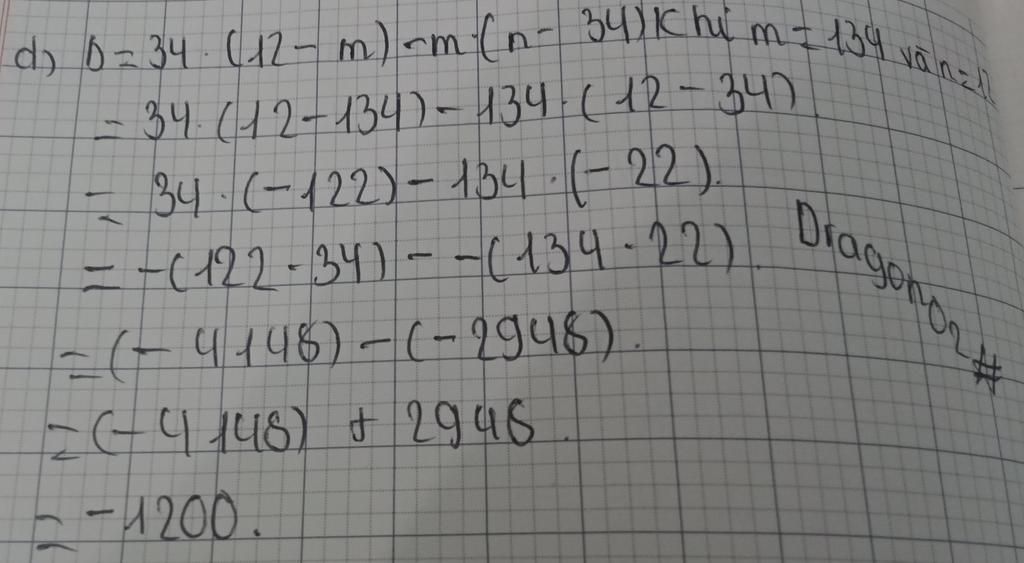 d) D = 34 . (12 - m) - m . (n - 34) Khi m = 134 và n = 12
= 34 . (12 - 134) - 134 . (12 - 34)
= 34 . (-122) - 134 . (-22).
= -(122 . 34) - -(134 . 22)
= (-4148) - (-2948).
= (-4148) + 2948.
= -1200.
Dragono2#